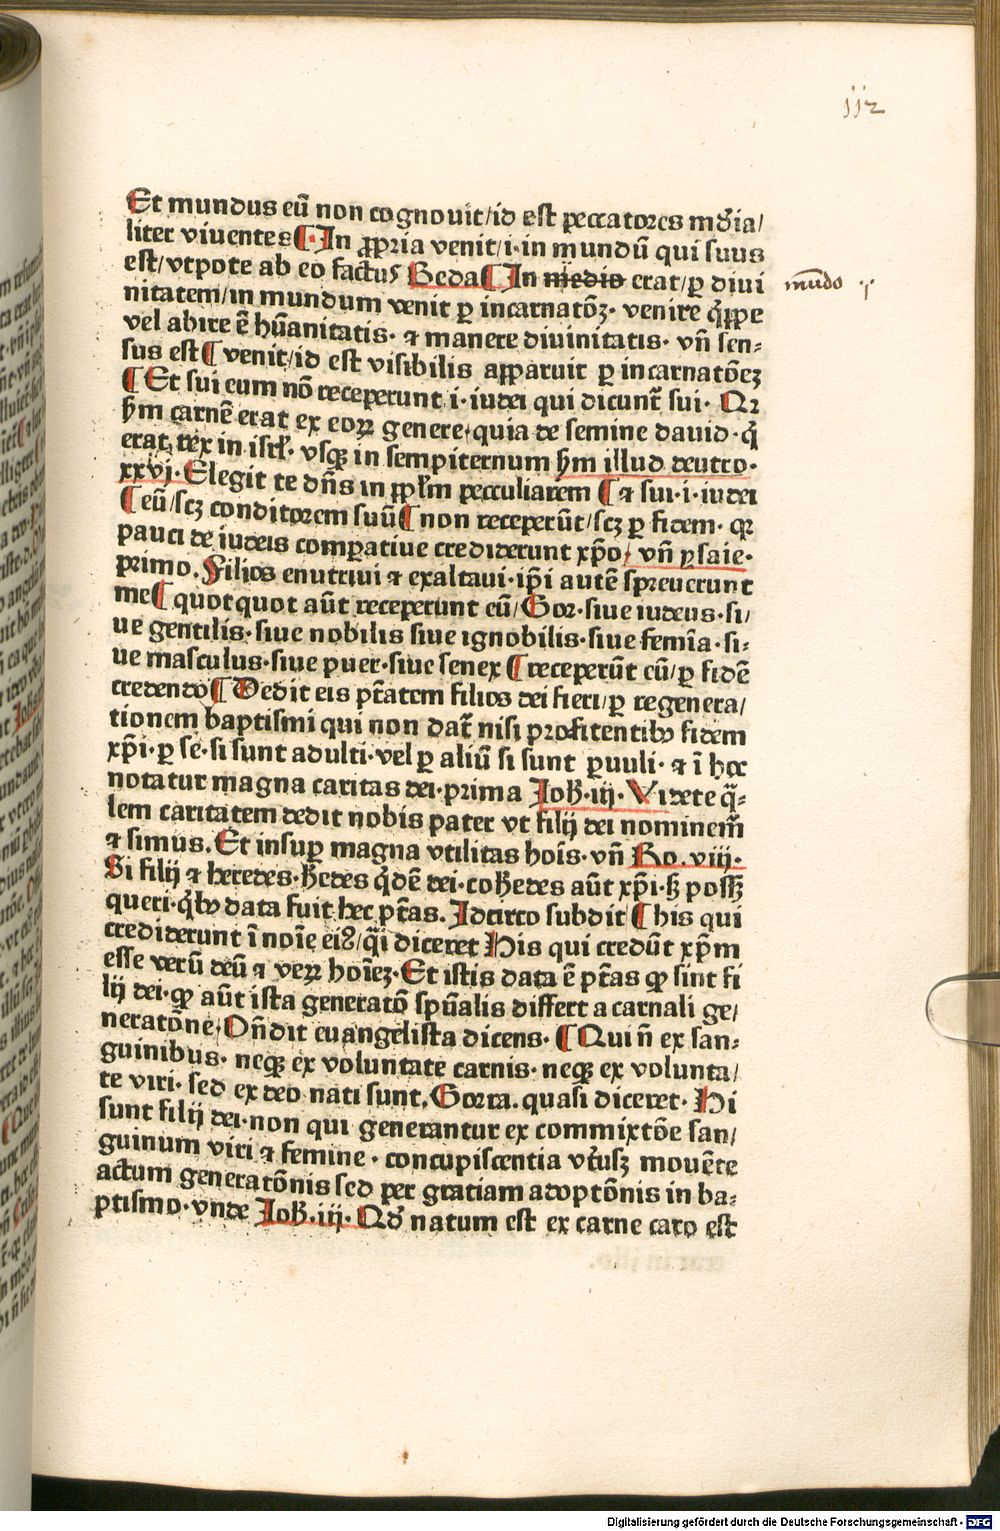 112
Et mundus eũ non cognouit/id est peccatores mũdia/
liter viuentes ¶ In ꝓpria venit/i·in mundũ qui suus
est/vtpote ab eo factus Beda ¶ In medio erat/ꝑ diui
mũdo
nitatem/in mundum venit ꝑ incarnatõꝫ· venire q̃ppe
vel abire ẽ hũanitatis· ⁊ manere diuinitatis· vñ sen⸗
sus est ¶ venit/id est visibilis apparuit ꝑ incarnatõeꝫ
¶ Et sui eum nõ receperunt·i·iudei qui dicunt̃ sui· Qꝛ
ẞm carnẽ erat ex eoꝝ genere·quia de semine dauid·q̃
erat rex in isrl̃· vsqꝫ in sempiternum ẞm illud deutro·
xxvj· Elegit te dñs in ppl̃m pecculiarem ¶ ⁊ sui·i·iudei
¶ eũ/scꝫ conditorem suũ ¶ non receperũt/scꝫ ꝑ fidem· qꝛ
pauci de iudeis comparatiue crediderunt xp̃o/ vñ ysaie·
primo. Filios enutriui ⁊ exaltaui·ip̃i autẽ spreuerunt
me ¶ quotquot aũt receperunt eũ/Gor·siue iudeus·si/
ue gentilis·siue nobilis siue ignobilis·siue femĩa·si⸗
ue masculus·siue puer·siue senex ¶ receperũt eũ/ꝑ fidẽ
credendo ¶ Dedit eis ptãtem filios dei fieri/ꝑ regenera/
tionem baptismi qui non dat̃ nisi profitentibꝰ fidem
xp̃i·ꝑ se·si sunt adulti·vel ꝑ aliũ si sunt ꝑuuli· ⁊ ĩ hoc
notatur magna caritas dei·prima Joh̃·iij· Videte q̃⸗
lem caritatem dedit nobis pater vt filij dei nominem̃
⁊ simus. Et insuꝑ magna vtilitas hoĩs·vñ Ro.viij·
Si filij ⁊ heredes·h̃edes q̃dẽ dei·coh̃edes aũt xp̃i·ẞ possꝫ
queri·q̃bꝰ data fuit hec ptãs. Jdcirco subdit ¶ his qui
crediderunt ĩ noĩe eiꝰ/q̃i diceret His qui credũt xp̃m
esse verũ deũ ⁊ veꝝ hoĩeꝫ·Et istis data ẽ ptãs ꝙ sint fi
lij dei·ꝙ aũt ista generatõ spũalis differt a carnali ge/
neratõne·Oñdit euangelista dicens· ¶ Qui ñ ex san⸗
guinibus· neqꝫ ex voluntate carnis·neqꝫ ex volunta/
te viri· sed ex deo nati sunt. Gorra.quasi diceret· Hi
sunt filij dei·non qui generantur ex commixtõe san/
guinum viri ⁊ femine·concupiscentia vt̃usꝫ mouẽte
actum generatõnis sed per gratiam adoptõnis in ba⸗
ptismo·vnde Joh̃.iij· Qđ natum est ex carne caro est
Digitalisierung gefördert durch die Deutsche Forschungsgemeinschaft - DFG